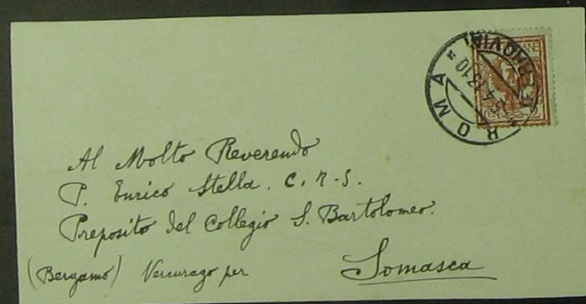 ROMA
FERROVIA
13.10
Al Molto Reverendo
P. Enrico Stella. C. R. S.
Preposito del Collegio S. Bartolomeo.
(Bergamo) Vercurago per Somasca